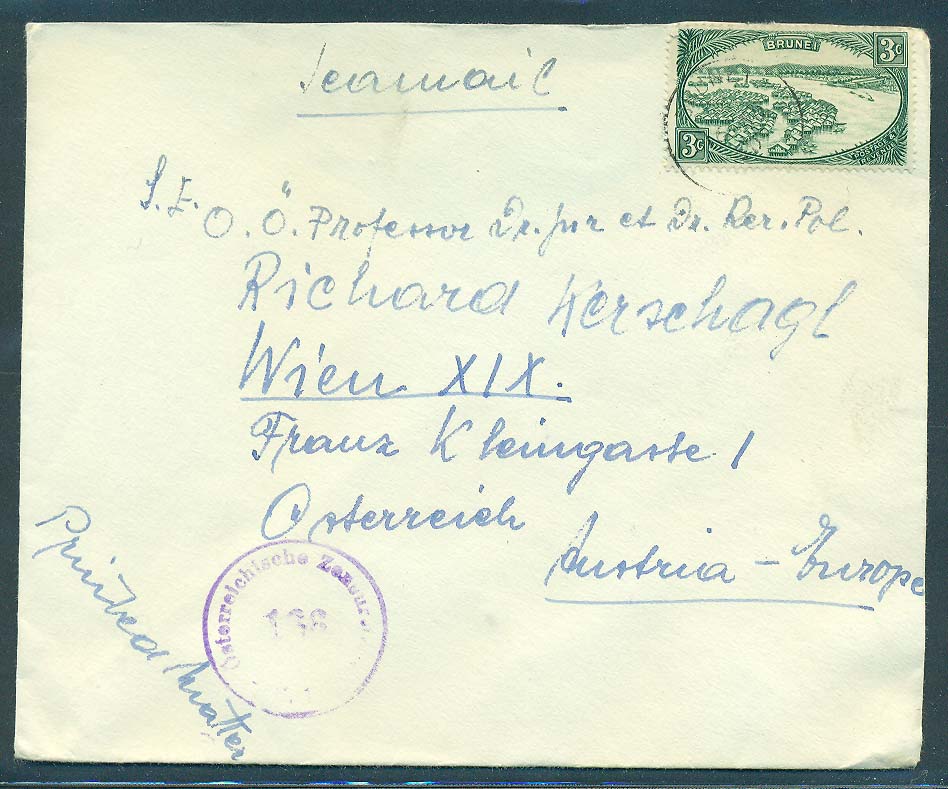 Seamail
BRUNEI
3c
3c
POSTAGE & REVENUE
S.E. O. Ö. Professor Dr. jur et Dr. Rer. Pol.
Richard Kerschagl
Wien XIX.
Franz Kleingasse 1
Österreich
Austria - Europe
Printed Matter
Österreichische Zensur